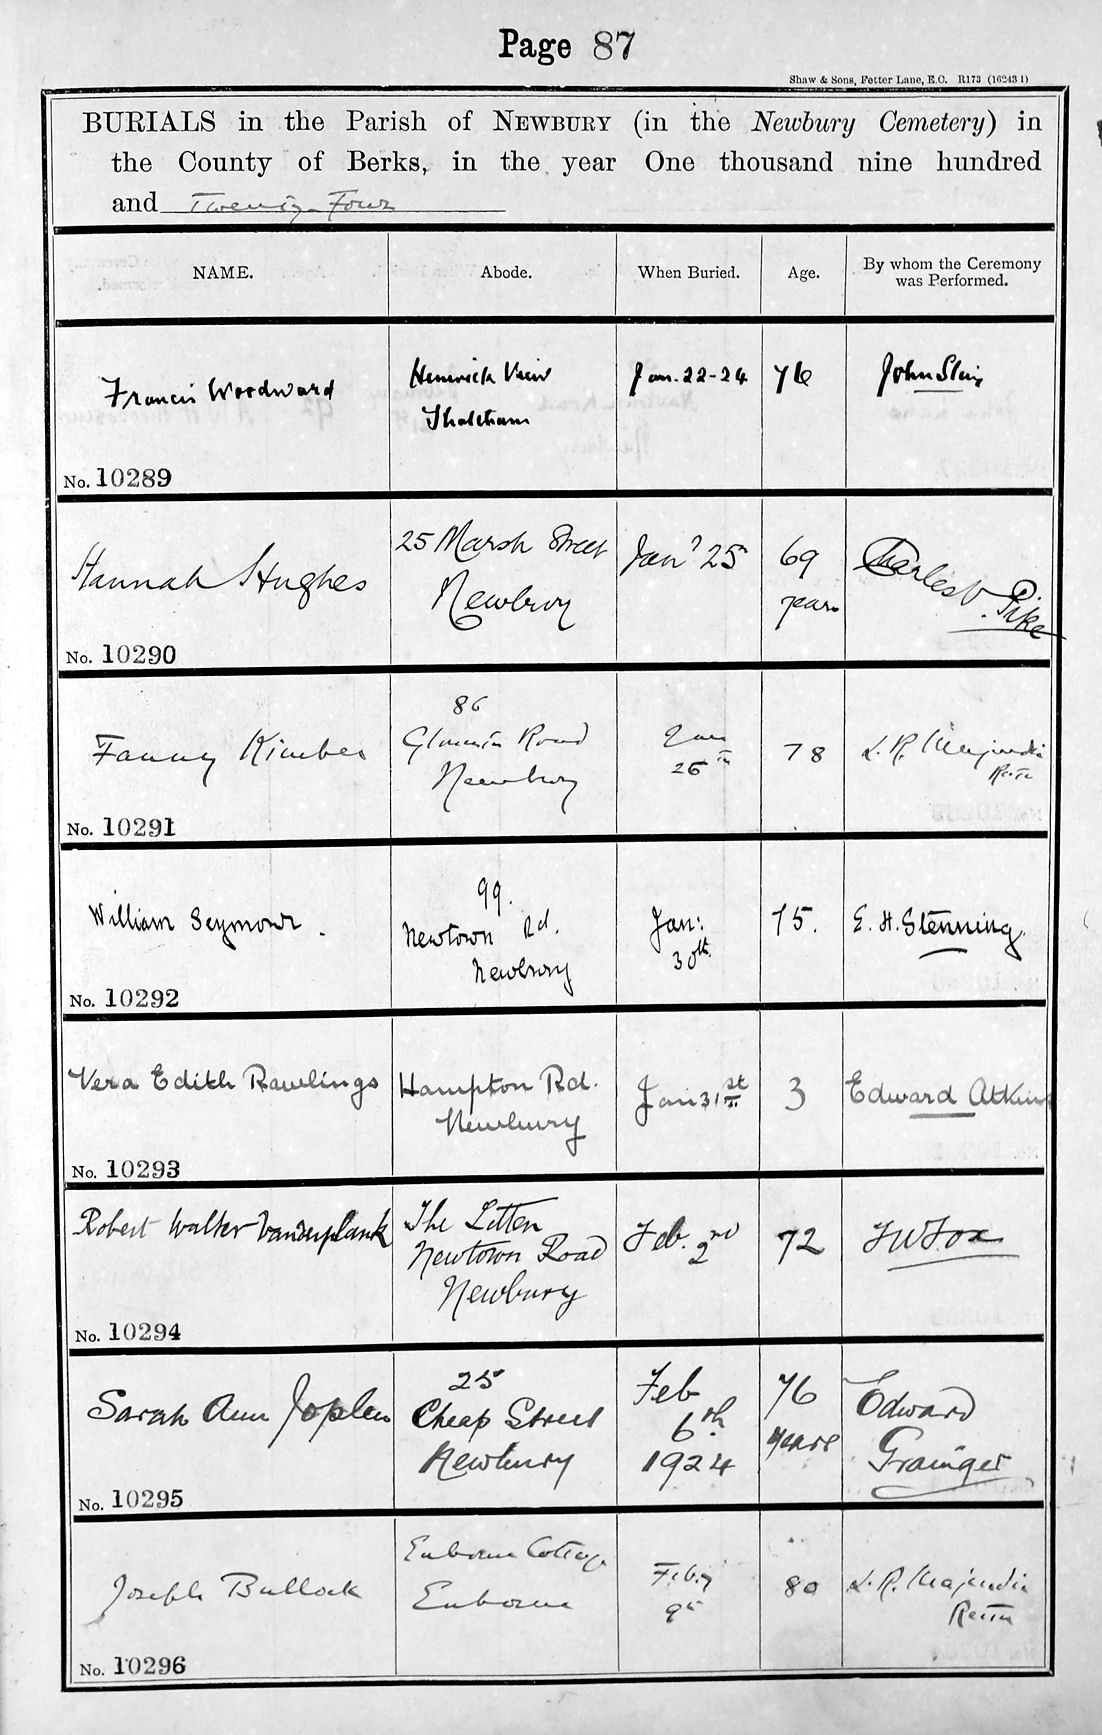 Page 87
Shaw & Sons, Fetter Lane, E.C. R173 (16243 1)
BURIALS in the Parish of NEWBURY (in the Newbury Cemetery) in
the County of Berks, in the year One thousand nine hundred
and Twenty-Four
NAME. Abode. When Buried. Age. By whom the Ceremony
was Performed.
Francis Woodward Henwick View Jan. 22-24 76 John
Thatcham
No. 10289
Hannah Hughes 25 Marsh Street Jany 25 69 Charles Pike
Newbury years
No. 10290
86
Fanny Kimber Road Jan 78 L. R. Majendie
Newbury 26th Rector
No. 10291
99.
William Seymour. Newtown Rd. Jan: 75. E. H. Stenning.
Newbury 30th
No. 10292
Vera Edith Rawlings Hampton Rd. Jan 31st 3 Edward Atkins
Newbury
No. 10293
Robert Walter Vanderplank The Litten Feb. 2nd 72 FW Fox
Newtown Road
Newbury
No. 10294
25 Feb 76 Edward
Sarah Ann Joplen Cheap Street 6th years Grainger
Newbury 1924
No. 10295
Enborne Cottage
Joseph Bullock Enborne Feby 80 L. R. Majendie
9th Rector
No. 10296